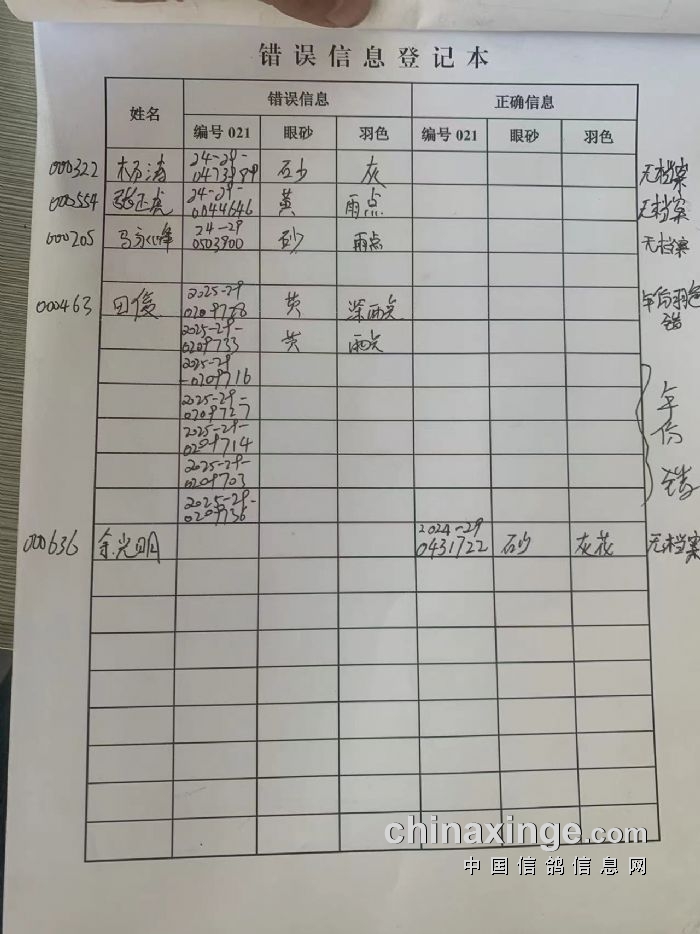 错误信息登记本
姓名 错误信息 正确信息
编号 021 眼砂 羽色 编号 021 眼砂 羽色
000322 杨涛 24-29- 砂 灰 无档案
24-29- 黄 雨点 无档案
000554 0044646
000205 24-29 砂 雨点 无档案
0503900
000463 田俊 2025-29 黄 深雨点 年份羽色
0209788 错
2025-29- 黄 雨点
0209733
2025-29
-0209716
2025-29-
0209727
2025-29-
0209714
2025-29-
0209703
2025-29-
0209736
年
份
错
000636 余光明 2024-29 砂 灰花 无档案
0431722
chinaxinge.com
中国信鸽信息网